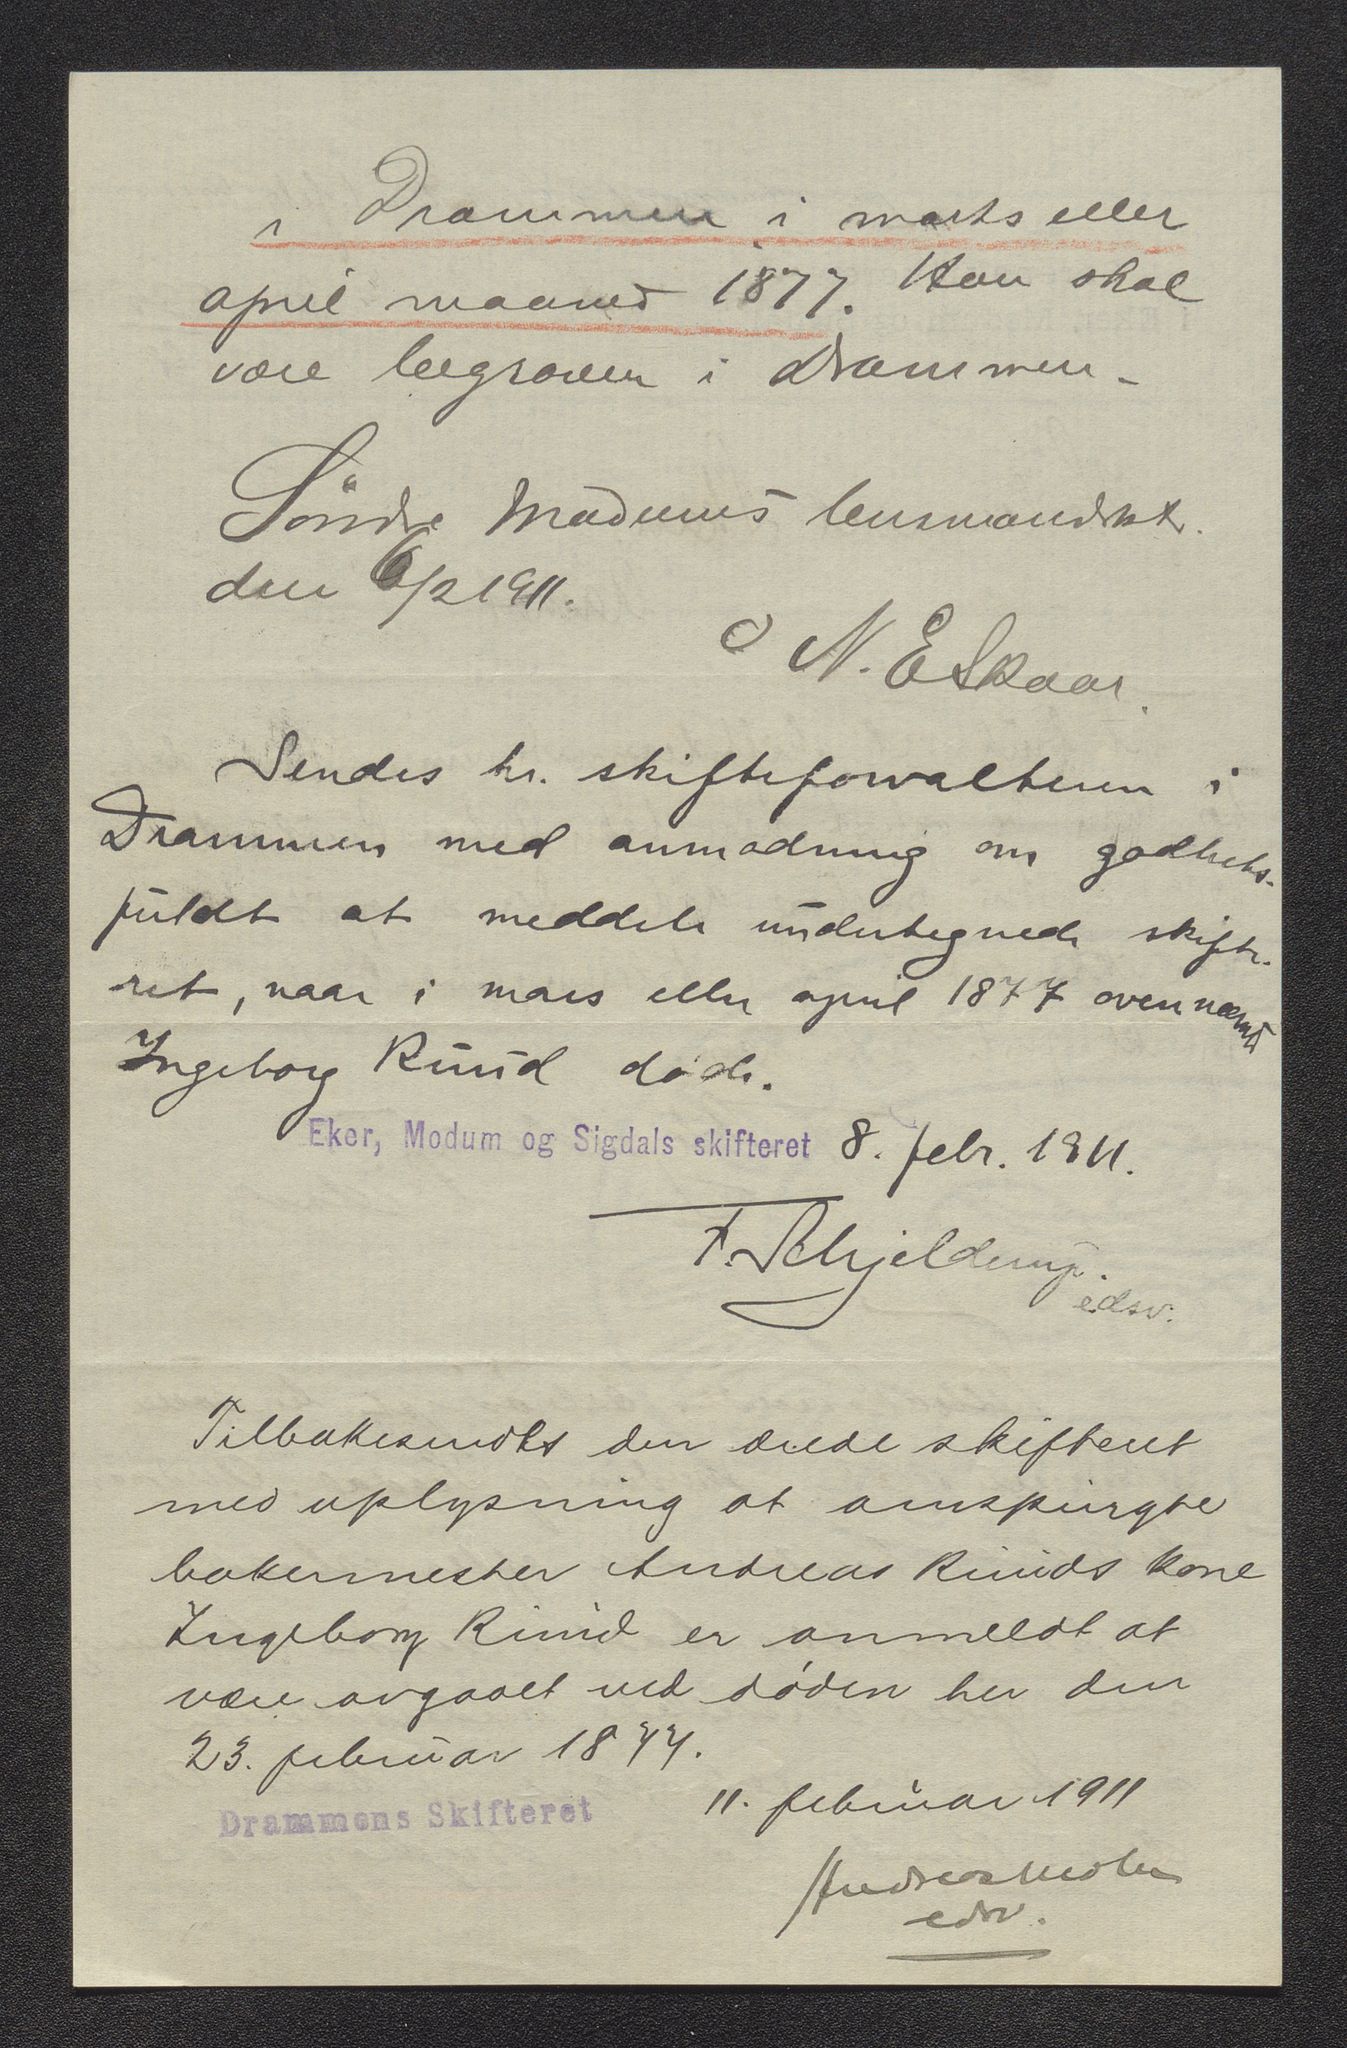 i Drammen i marts eller
april maaned 1877. Hun skal
være begraven i Drammen -
Söndre Modums lensmandskt.
den 6/2 1911.
N. E Skaar.
Sendes hr. skifteforvalteren i
Drammen med anmodning om godhets-
fuldt at meddele undertegnede skifte-
ret, naar i mars eller april 1877 ovennævnte
Ingeborg Ruud døde.
Eker, Modum og Sigdals skifteret 8. febr. 1911.
F. Schjelderup.
edsv.
Tilbakesendes den ærede skifteret
med oplysning at omspurgte
bakermester Andreas Ruuds kone
Ingeborg Ruud er anmeldt at
være avgaaet ved døden her den
23. februar 1877.
Drammens Skifteret 11. februar 1911
Andreas
edsv.